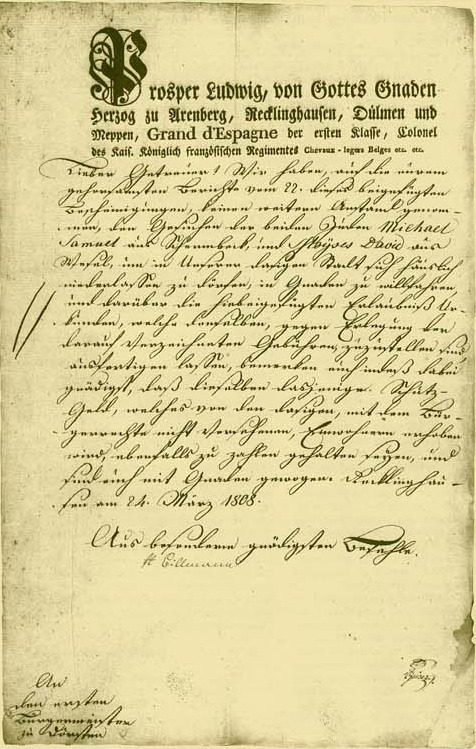 Prosper Ludwig, von Gottes Gnaden
Herzog zu Arenberg, Recklinghausen, Dülmen und
Meppen, Grand d'Espagne der ersten Klasse, Colonel
des Kais. Königlich französischen Regimentes Chevaux-legers Belges etc. etc.
Lieber Getreuer! Wir haben, auf die eurem
gehorsamsten Berichte vom 22. dieses beigefügten
Bescheinigungen, keinen weitern Anstand genom-
men, den Gesuchen der beiden Juden Michael
Samuel aus und Moises David aus
Wesel, um in Unserer dasigen Stadt sich häuslich
niederlassen zu dörfen, in Gnaden zu willfahren,
und darüber die hiebeigefügten Erlaubniß Ur-
kunden, welche denselben, gegen Erlegung der
darauf verzeichneten Gebühren, zuzustellen sind
ausfertigen lassen, bemerken euch indeß dabei
gnädigst, daß dieselben dasjenige Schutz-
Geld, welches von den dasigen, mit dem Bür-
gerrechte nicht versehenen, Einwohnern erhoben
wird, ebenfalls zu zahlen gehalten seyen, und
sind euch mit Gnaden gewogen. Recklinghau-
sen am 24. März 1808.
Aus besonderm gnädigsten Befehle.
An
den ersten
Bürgermeister
zu Dorsten